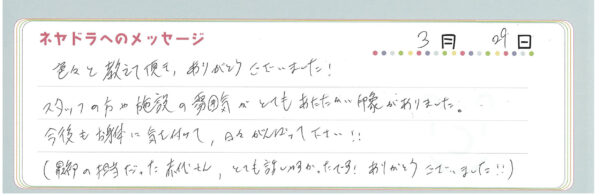 ネヤドラへのメッセージ
3月 29日
色々と教えて頂き、ありがとうございました!
スタッフの方や施設の雰囲気がとてもあたたかい印象がありました。
今後もお身体に気を付けて、日々がんばって下さい!!
(最初の担当だった赤代さん、とても話しやすかったです! ありがとうございました!!)